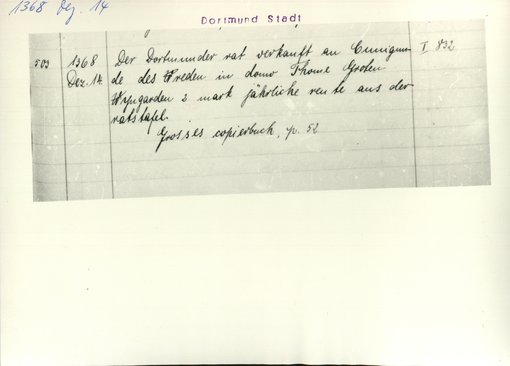 1368 Dez. 14
Dortmund Stadt
503 1368 Der Dortmunder rat verkauft an Cunigun- I 832
Dez. 14. de des Wreden in domo Thome Groten
Wyngarden 2 mark jährliche rente aus der
ratstafel.
Grosses copierbuch, p. 52